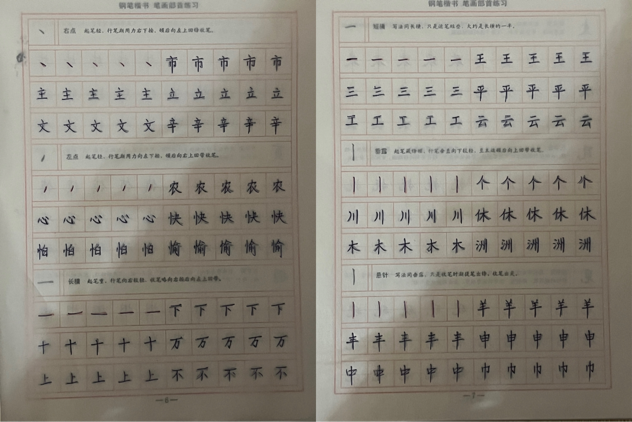 钢笔楷书 笔画部首练习
丶 右点 起笔轻，行笔渐用力右下按，顿后向左上回锋收笔。
丶 丶 丶 丶 丶 市 市 市 市 市
主 主 主 主 主 立 立 立 立 立
文 文 文 文 文 辛 辛 辛 辛 辛
左点 起笔轻，行笔渐用力向左下按，顿后向右上回带收笔。
农 农 农 农 农
心 心 心 心 心 快 快 快 快 快
怕 怕 怕 怕 怕 愉 愉 愉 愉 愉
一 长横 起笔重，行笔向右较轻，收笔略向右顿后向左上回带。
一 一 一 一 一 下 下 下 下 下
十 十 十 十 十 万 万 万 万 万
上 上 上 上 上 不 不 不 不 不
—6—
钢笔楷书 笔画部首练习
一 短横 写法同长横，只是收笔
一 一 一 一 一 王 王 王 王 王
三 三 三 三 三 平 平 平 平 平
工 工 工 工 工 云 云 云 云 云
丨 垂露
丨 丨 丨 丨 丨 个 个 个 个 个
川 川 川 川 川 休 休 休 休 休
木 木 木 木 木 洲 洲 洲 洲 洲
丨 悬针 写法同垂露，只是收笔时
丨 丨 丨 丨 丨 羊 羊 羊 羊 羊
丰 丰 丰 丰 丰 申 申 申 申 申
中 中 中 中 中 巾 巾 巾 巾 巾
—7—